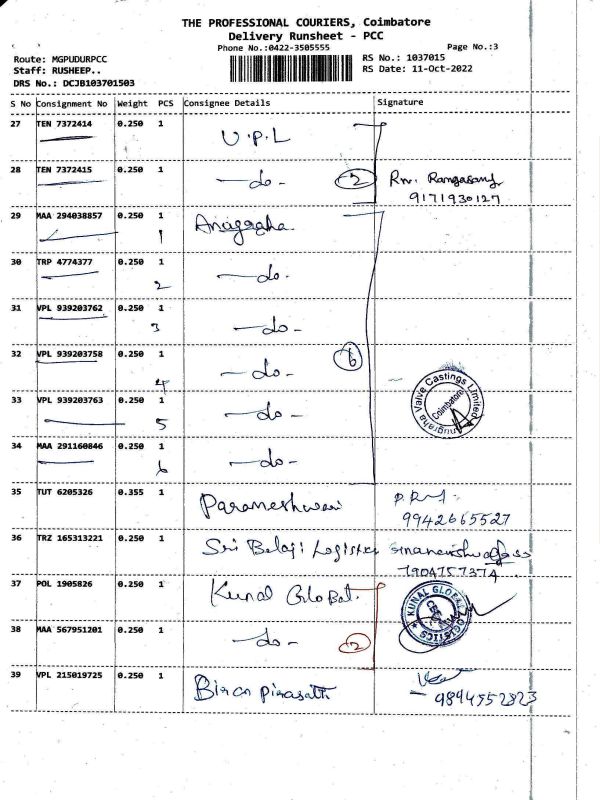 THE PROFESSIONAL COURIERS, Coimbatore
Delivery Runsheet - PCC
Phone No.:0422-3505555
Page No.:3
Route: MGPUDURPCC
RS No.: 1037015
Staff: RUSHEEP..
RS Date: 11-Oct-2022
DRS No.: DCJB103701503
S No Consignment No Weight PCS Consignee Details Signature
27 TEN 7372414 0.250 1 U.P.L
28 TEN 7372415 0.250 1 -do- 2 Rm. Rangasamy
9171930127
29 MAA 294038857 0.250 1 Anugraha
1
30 TRP 4774377 0.250 1 -do-
2
31 VPL 939203762 0.250 1 -do-
3
32 VPL 939203758 0.250 1 -do- 6
4
33 VPL 939203763 0.250 1 -do- Anugraha Valve Castings Limited
Coimbatore
5
34 MAA 291160846 0.250 1 -do-
6
35 TUT 6205326 0.355 1 Parameshwari
9942665527
36 TRZ 165313221 0.250 1 Sri Balaji Logistics
7904757374
37 POL 1905826 0.250 1 Kunal Global. KUNAL GLOBAL LOGISTICS
38 MAA 567951201 0.250 1 -do- 2
39 VPL 215019725 0.250 1
9894552823